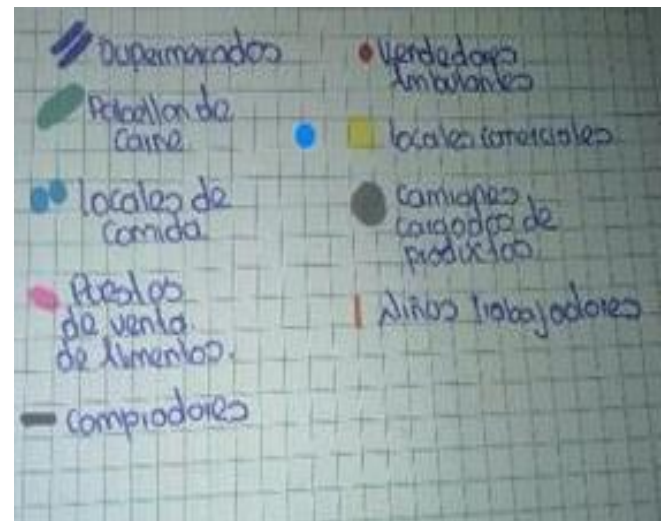 Supermercados
Pabellon de
Carne
locales de
Comida
Puestos
de venta
de Alimentos.
Compradores
Vendedores
Ambulantes
locales comerciales
Camiones
cargados de
productos
Niños trabajadores